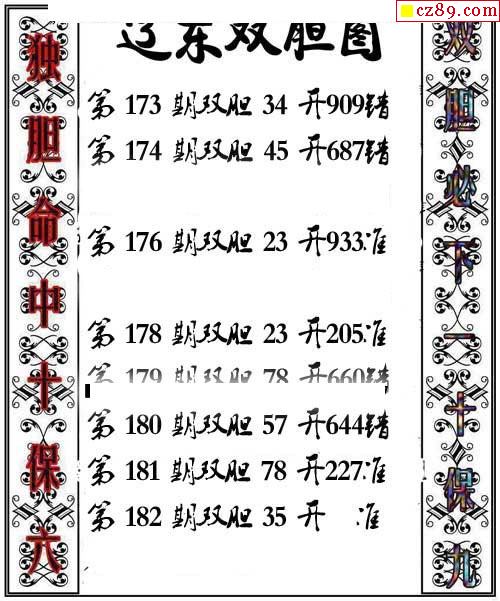 cz89.com
辽东双胆图
独胆命中十保六
第 173 期双胆 34 开909错
第 174 期双胆 45 开687错
第 176 期双胆 23 开933准
第 178 期双胆 23 开205准
第 179 期双胆 78 开660错
第 180 期双胆 57 开644错
第 181 期双胆 78 开227准
第 182 期双胆 35 开 准
双胆必下一十保九